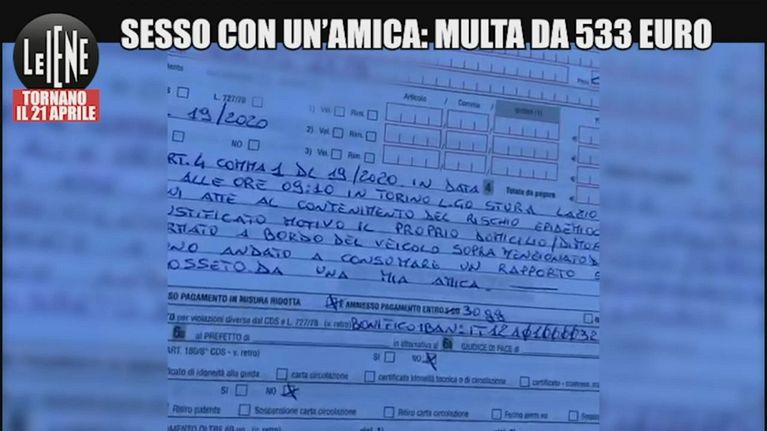 SESSO CON UN'AMICA: MULTA DA 533 EURO
Le IENE
TORNANO
IL 21 APRILE
L. 727/78
Articolo Comma
1) Vel. Rim.
19/2020
2) Vel. Rim.
NO
3) Vel. Rim.
RT. 4 COMMA 1 DL 19/2020 IN DATA 4 Totale da pagare
ALLE ORE 09:10 IN TORINO L.GO STURA LAZIO
ATTE AL CONTENIMENTO DEL RISCHIO EPIDEMIOL
USTIFICATO MOTIVO IL PROPRIO DOMICILIO/DIMOR
RMATO A BORDO DEL VEICOLO SOPRA MENZIONATO D
NO ANDATO A CONSUMARE UN RAPPORTO S
OSSETO DA UNA MIA AMICA.
SO PAGAMENTO IN MISURA RIDOTTA È AMMESSO PAGAMENTO ENTRO 30 GG
TO per violazioni diverse dal CDS e L. 727/78 (v. retro) BONIFICO IBAN: IT
6a al PREFETTO di in alternativa al 6b GIUDICE DI PACE di
ART. 180/8° CDS - v. retro) SI NO
ficato di idoneità alla guida carta circolazione certificato idoneità tecnica o di circolazione certificato
SI NO
Ritiro patente Sospensione carta circolazione Ritiro carta circolazione Fermo amm.vo